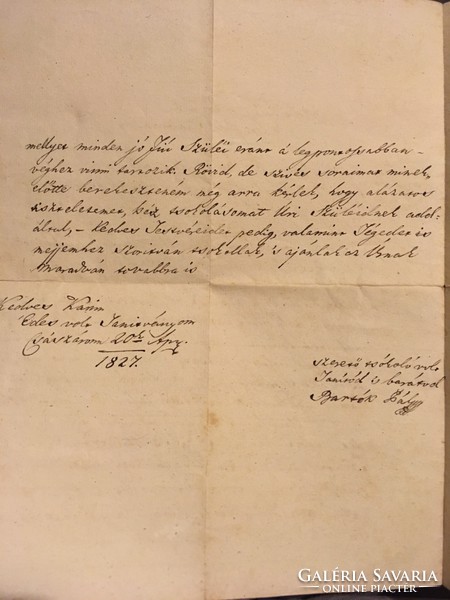 mellyet minden jó Fiú Szüléi eránt a legpontossabban
véghez vinni tartozik. Rövid, de szíves soraimat minek
előtte berekeszteném még arra kérlek, hogy alázatos
tiszteletemet, kéz tsókolásomat Úri Szüléidnek add-
által, – kedves Testvéreidet pedig, valamint Tégedet is
mejjemhez szoritván tsókollak, 's ajánlak az Úrnak
Maradván továbbra is
Kedves
Édes volt Tanitványom
Császáron 20k Apr.
1827.
szerető tsókoló volt
Tanitód is barátod
Bartók Pál
GALÉRIA SAVARIA
ONLINE PIACTÉR